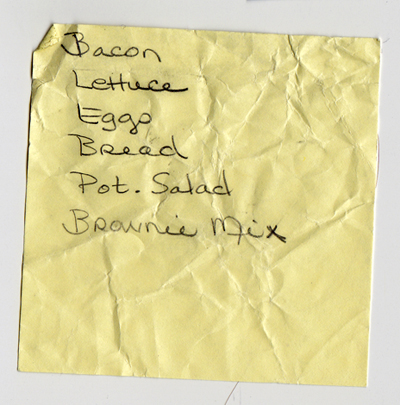 Bacon
Lettuce
Eggs
Bread
Pot. Salad
Brownie Mix